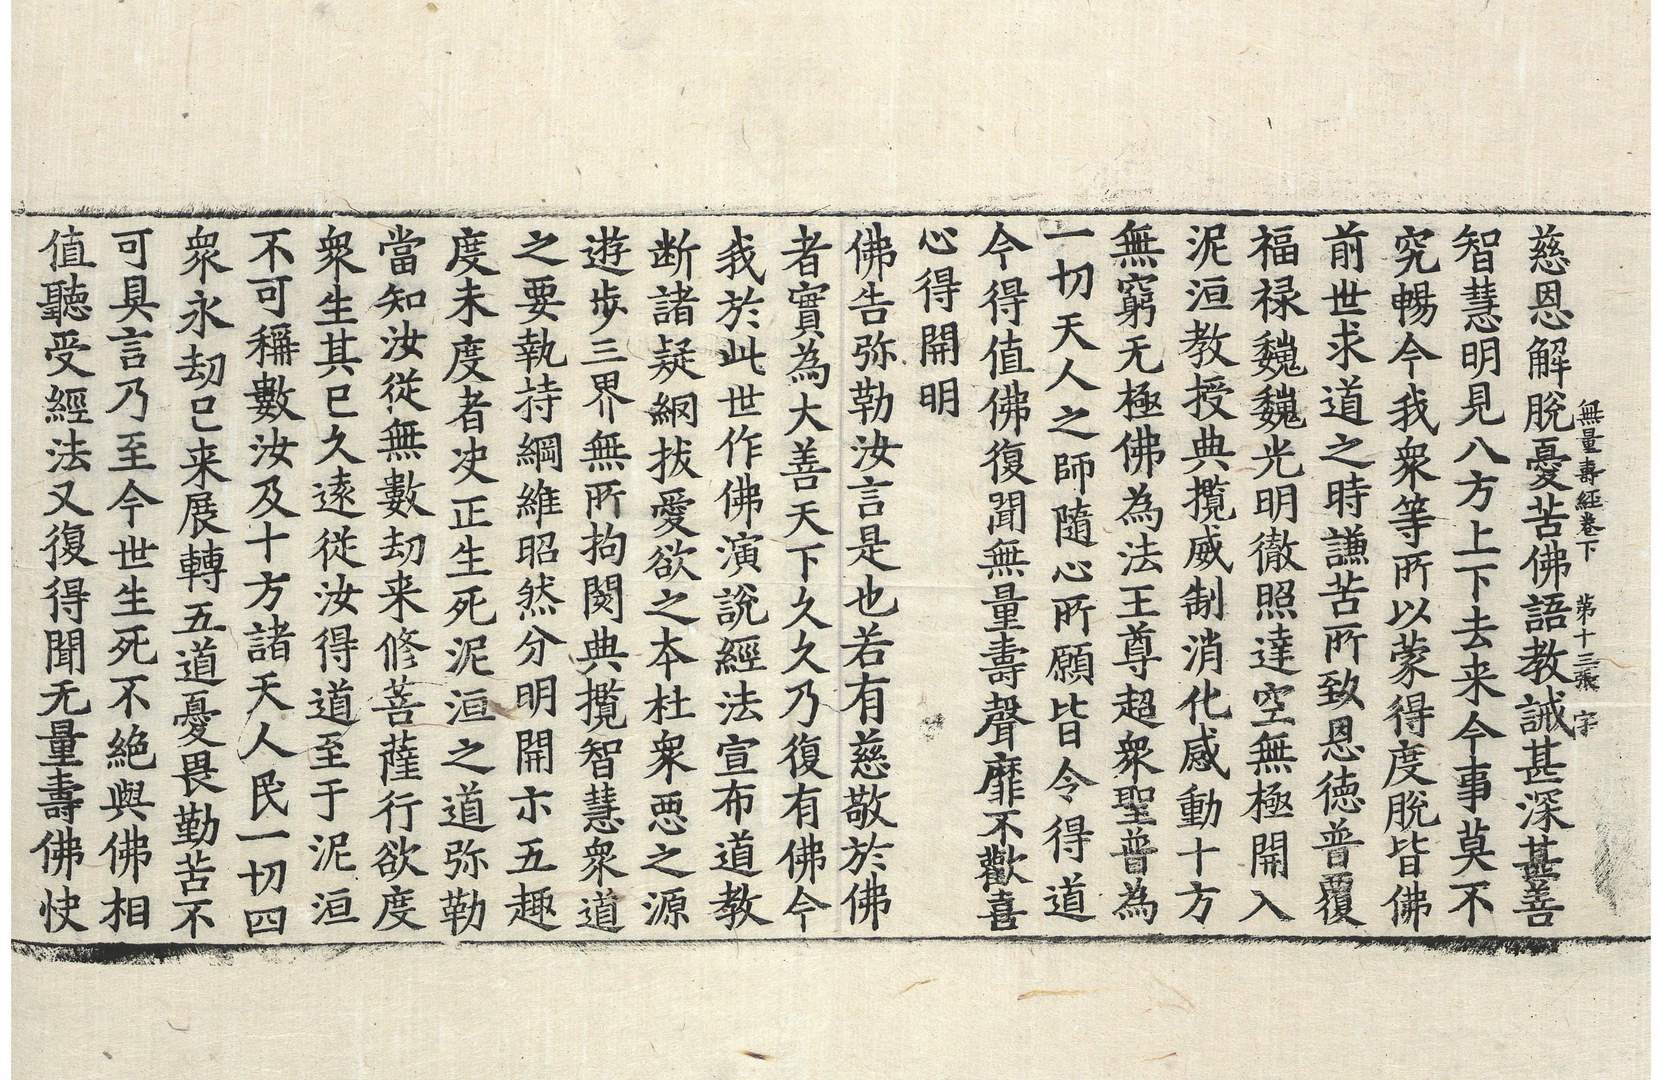 無量壽經卷下　第十三張　字
慈恩解脫憂苦佛語教誡甚深甚善
智慧明見八方上下去来今事莫不
究暢今我衆等所以蒙得度脫皆佛
前世求道之時謙苦所致恩德普覆
福禄巍巍光明徹照達空無極開入
泥洹教授典攬威制消化感動十方
無窮无極佛為法王尊超衆聖普為
一切天人之師隨心所願皆令得道
今得值佛復聞無量壽聲靡不歡喜
心得開明
佛告弥勒汝言是也若有慈敬於佛
者實為大善天下久久乃復有佛今
我於此世作佛演說經法宣布道教
断諸疑網拔愛欲之本杜衆惡之源
遊步三界無所拘閡典攬智慧衆道
之要執持綱維昭然分明開示五趣
度未度者决正生死泥洹之道弥勒
當知汝從無數劫来修菩薩行欲度
衆生其已久遠從汝得道至于泥洹
不可稱數汝及十方諸天人民一切四
衆永劫已来展轉五道憂畏勤苦不
可具言乃至今世生死不絶與佛相
值聽受經法又復得聞无量壽佛快